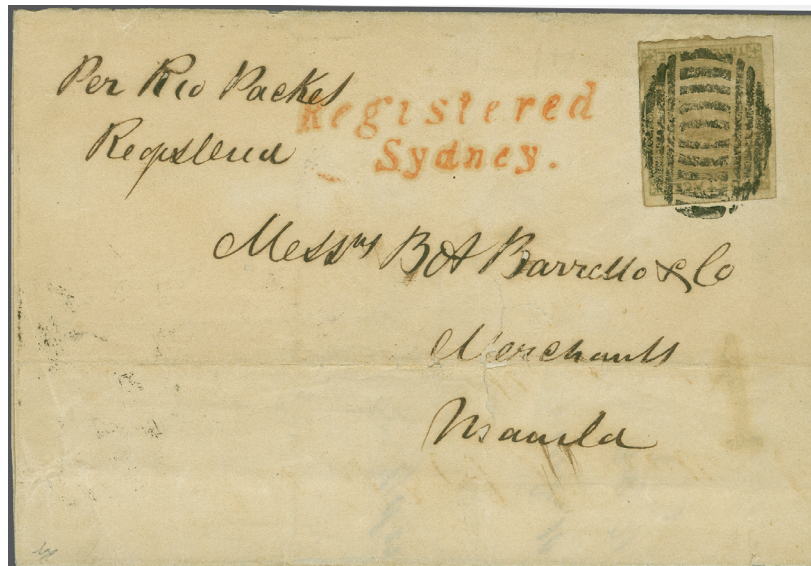 Per Rio Packet
Registered
Registered
Sydney.
Messrs B A Barretto & Co
Merchants
Manila